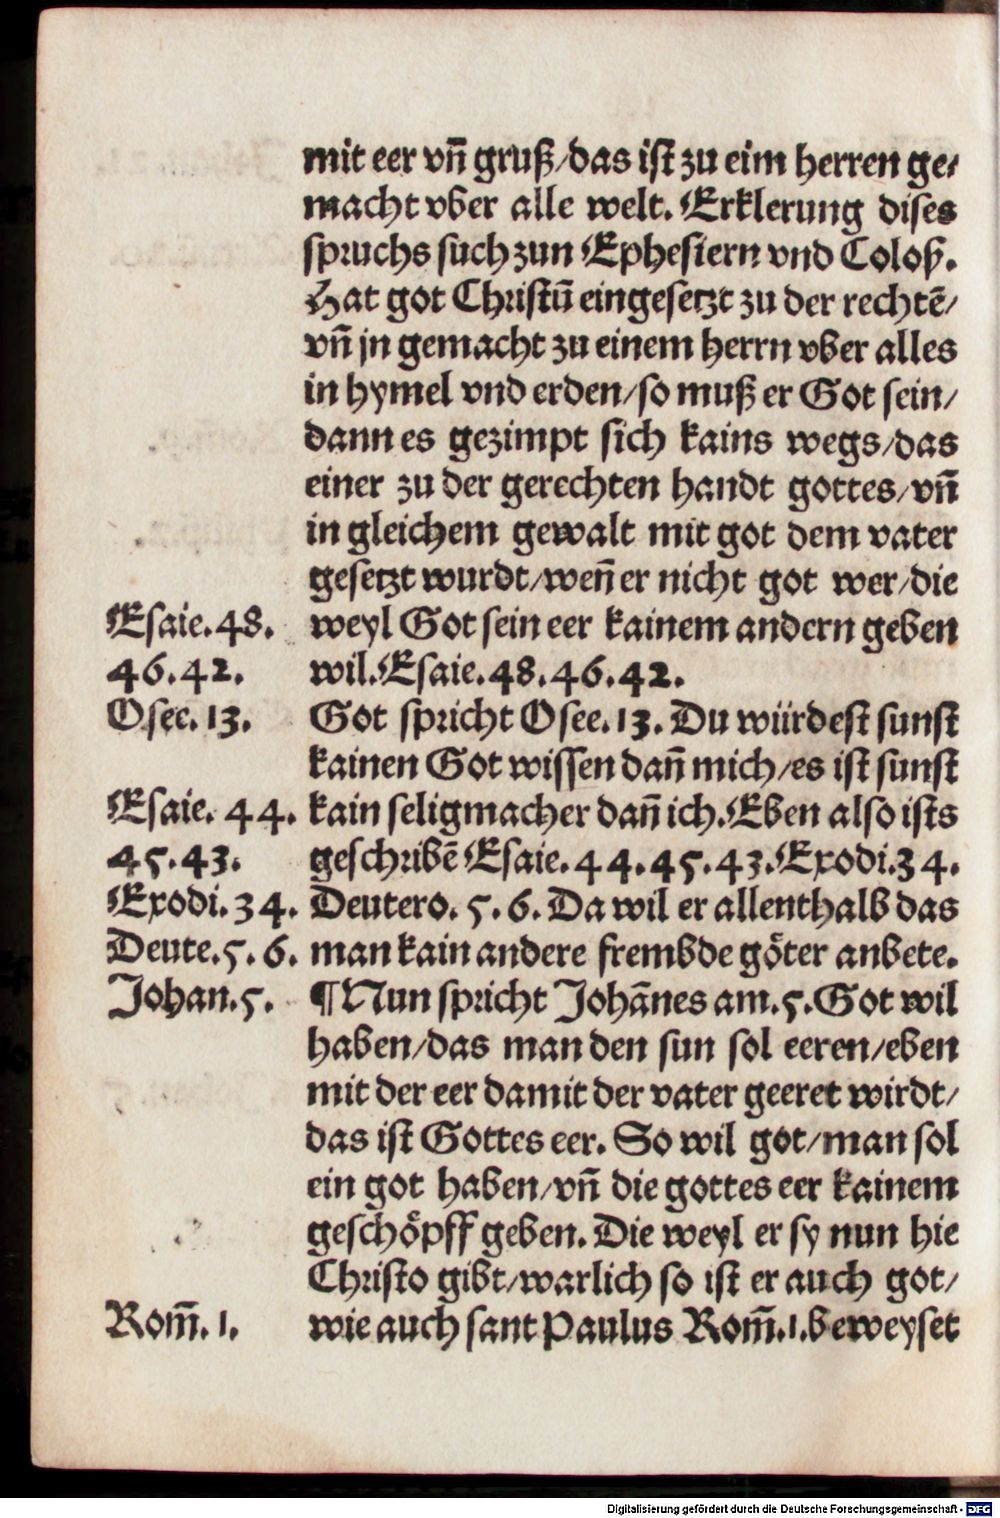 mit eer vñ gruß/das ist zu eim herren ge⸗
macht vber alle welt. Erklerung dises
spruchs such zun Ephesiern vnd Coloß.
Hat got Christū eingesetzt zu der rechtē/
vñ jn gemacht zu einem herrn vber alles
in hymel vnd erden/so muß er Got sein/
dann es gezimpt sich kains wegs/das
einer zu der gerechten handt gottes/vñ
in gleichem gewalt mit got dem vater
gesetzt wurdt/weñ er nicht got wer/die
Esaie.48. weyl Got sein eer kainem andern geben
46.42. wil.Esaie.48.46.42.
Osee.13. Got spricht Osee.13. Du würdest sunst
kainen Got wissen dañ mich/es ist sunst
Esaie. 44. kain seligmacher dañ ich.Eben also ists
45.43. geschribē Esaie.44.45.43.Exodi.34.
Exodi.34. Deutero. 5.6. Da wil er allenthalb das
Deute.5.6. man kain andere frembde göter anbete.
Johan.5. ¶ Nun spricht Johānes am.5.Got wil
haben/das man den sun sol eeren/eben
mit der eer damit der vater geeret wirdt/
das ist Gottes eer. So wil got/man sol
ein got haben/vñ die gottes eer kainem
geschöpff geben. Die weyl er sy nun hie
Christo gibt/warlich so ist er auch got/
Rom̄.1. wie auch sant Paulus Rom̄.1.beweyset
Digitalisierung gefördert durch die Deutsche Forschungsgemeinschaft - DFG